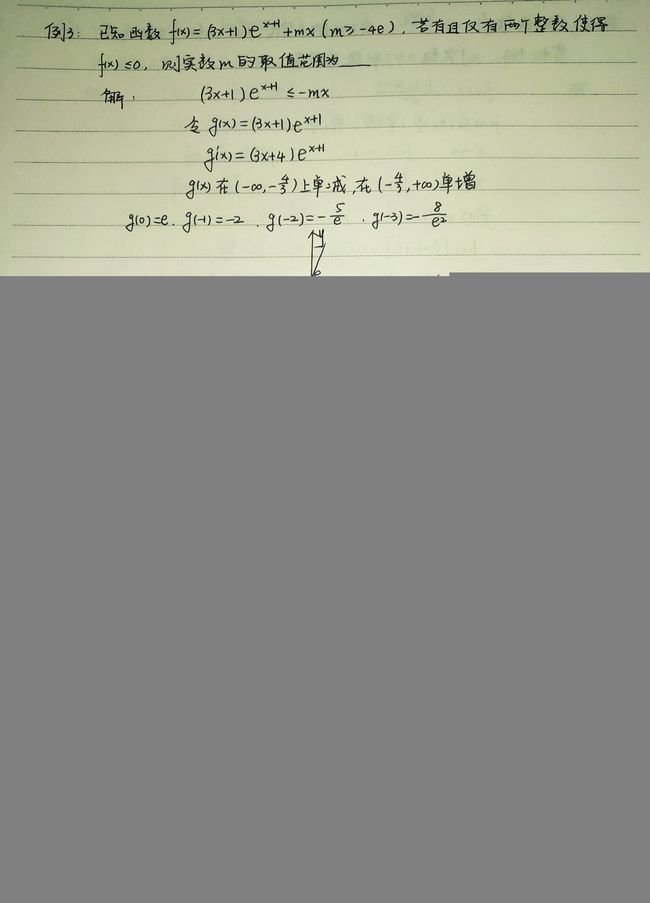 例3: 已知函数 f(x)=(3x+1)e^{x+1}+mx(m≥-4e),若有且仅有两个整数使得
f(x)≤0,则实数m的取值范围为____
解: (3x+1)e^{x+1}≤-mx
令 g(x)=(3x+1)e^{x+1}
g'(x)=(3x+4)e^{x+1}
g(x)在(-∞,-4/3)上单减,在(-4/3,+∞)单增
g(0)=e. g(-1)=-2. g(-2)=-5/e. g(-3)=-8/e²
y